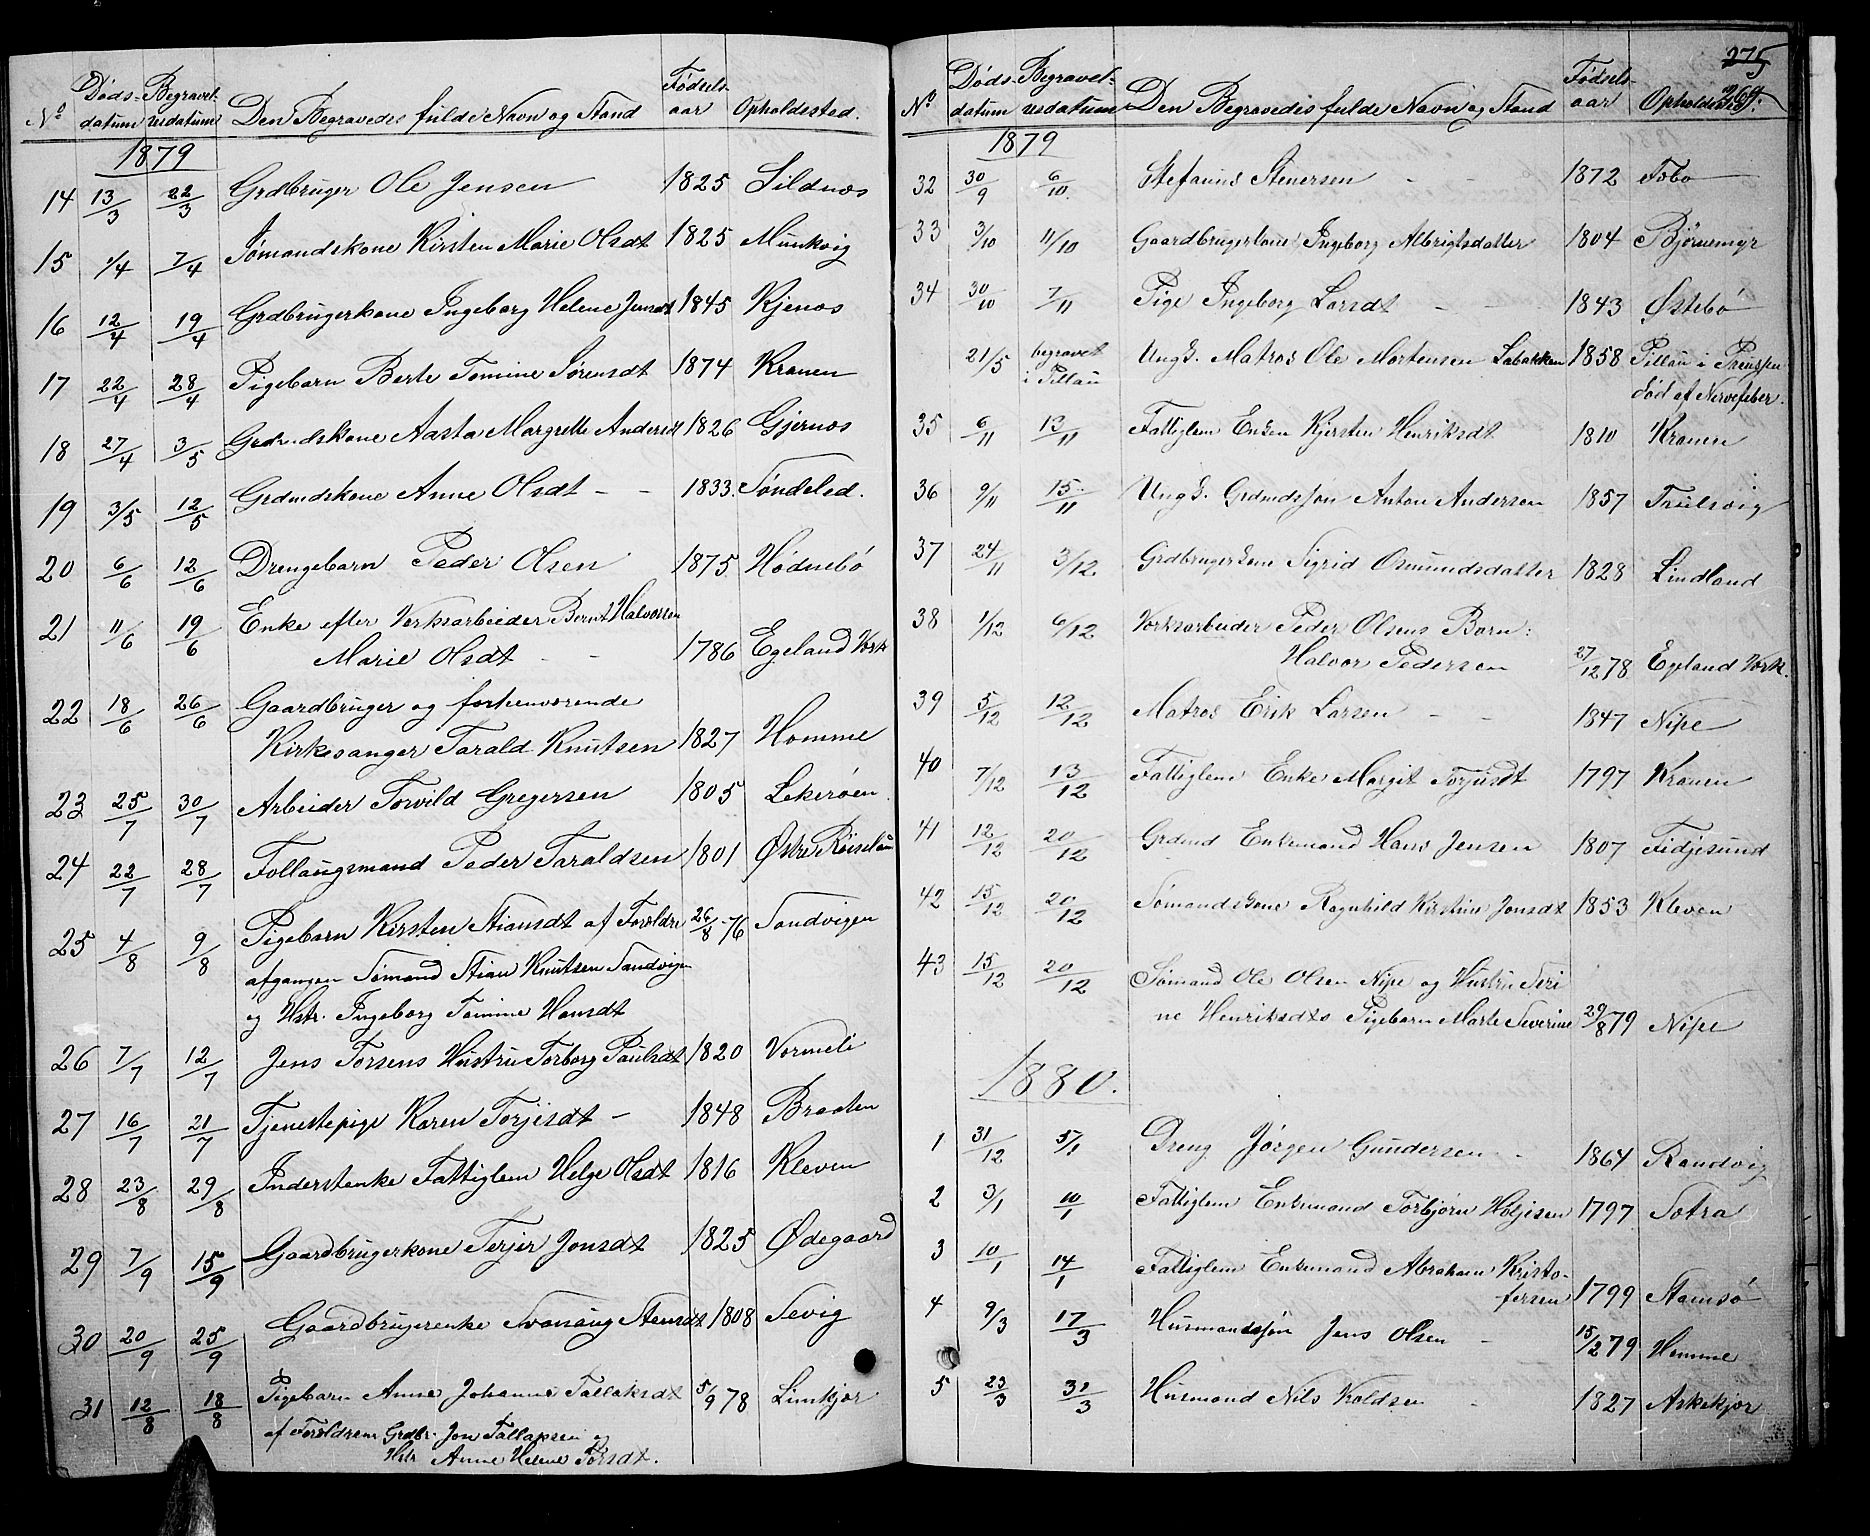 No Døds-datum Begravel-sesdatum Den Begravedes fulde Navn og Stand Fødsels-aar Opholdssted.
1879
14 13/3 22/3 Grdbruger Ole Jensen 1825 Sildnæs
15 1/4 7/4 Sømandskone Kirsten Marie Olsdt 1825 Munkvig
16 12/4 19/4 Grdbrugerkone Ingeborg Helene Jensdt 1845 Kjenæs
17 22/4 28/4 Pigebarn Berte Tomine Sørensdt 1874 Kranen
18 27/4 3/5 Grdmdskone Aasta Margrette Andersdt 1826 Gjernæs
19 3/5 12/5 Grdmdskone Anne Olsdt - - 1833. Søndeled.
20 6/6 12/6 Drengebarn Peder Olsen 1875 Hødnebø
21 11/6 19/6 Enke efter Verksarbeider Bernt Halvorsen
Marie Olsdt - - 1786 Egeland Værk
22 18/6 26/6 Gaardbruger og forhenværende
Kirkesanger Tarald Knutsen 1827 Homme
23 25/7 30/7 Arbeider Torvild Gregersen 1805 Lekerøen
24 22/7 28/7 Follaugsmand Peder Taraldsen 1801 Østre
25 4/8 9/8 Pigebarn Kirsten Stiansdt af Forældre 26/8 76 Sandvigen
afgangen Sømand Stian Knutsen Sandvigen
og Hstr. Ingeborg Tomine Hansdt
26 7/7 12/7 Jens Torsens Hustru Torborg Paulsdt 1820 Vormeli
27 16/7 21/7 Tjenestepige Karen Torjesdt - 1848 Braaten
28 23/8 29/8 Inderstenke Fattiglem Helge Olsdt 1816 Kleven
29 7/9 15/9 Gaardbrugerkone Terjer Jonsdt 1825 Ødegaard
30 20/9 25/9 Gaardbrugerenke Svanaug Stensdt 1808 Sevig
31 12/8 18/8 Pigebarn Anne Johanne Tallaksdt 5/9 78 Limkjær
af Forældrene Grdbr. Jon Tallaksen og
Hstr Anne Helene Torsdt.
275
269.
No Døds-datum Begravel-sesdatum Den Begravedes fulde Navn og Stand Fødsels-aar Opholdsst.
1879
32 30/9 6/10. Stefanus Stenersen - - 1872 Fobo
33 3/10 11/10 Gaardbrugerkone Ingeborg Albrigtsdatter 1804 Bjørnemyr
34 30/10 7/11 Pige Ingeborg Larsdt - - 1843 Østebø
21/5 begravet i Pillau Ungk. Matros Ole Mortensen Løbakken 1858 Pillau i Preussen
død af Nervefeber.
35 6/11 13/11 Fattiglem Enken Kjersten Henriksdt 1810 Kranen
36 9/11 15/11 Ungk. Grdmdssøn Anton Andersen 1857 Trulsvig
37 24/11 3/12 Grdbrugerkone Sigrid Osmundsdatter 1828 Lindland
38 1/12 6/12 Værksarbeider Peder Olsens Barn:
Halvor Pedersen 27/12 78 Egeland Værk.
39 5/12 12/12 Matros Erik Larsen - - 1847 Nipe
40 7/12 13/12 Fattiglem Enke Margit Torjusdt 1797 Kranen
41 12/12 20/12 Grdmd Enkemand Hans Jensen 1807 Fidjesund
42 15/12 20/12 Sømandskone Ragnhild Kirstine Jonsdt 1853 Kleven
43 15/12 20/12 Sømand Ole Olsen Nipe og Hustru Seri
ne Henriksdts Pigebarn Marte Severine 29/8 79 Nipe
1880.
1 31/12 5/1 Dreng Jørgen Gundersen - 1864 Randvig
2 3/1 10/1 Fattiglem Enkemand Torbjørn Holjesen 1797 Sotra
3 10/1 14/1 Fattiglem Enkemand Abraham Kristo-
fersen 1799 Stamsø
4 9/3 17/3 Husmandssøn Jens Olsen - 15/2 79 Hemme
5 23/3 31/3 Husmand Nils Koldsen - 1827 Askekjær